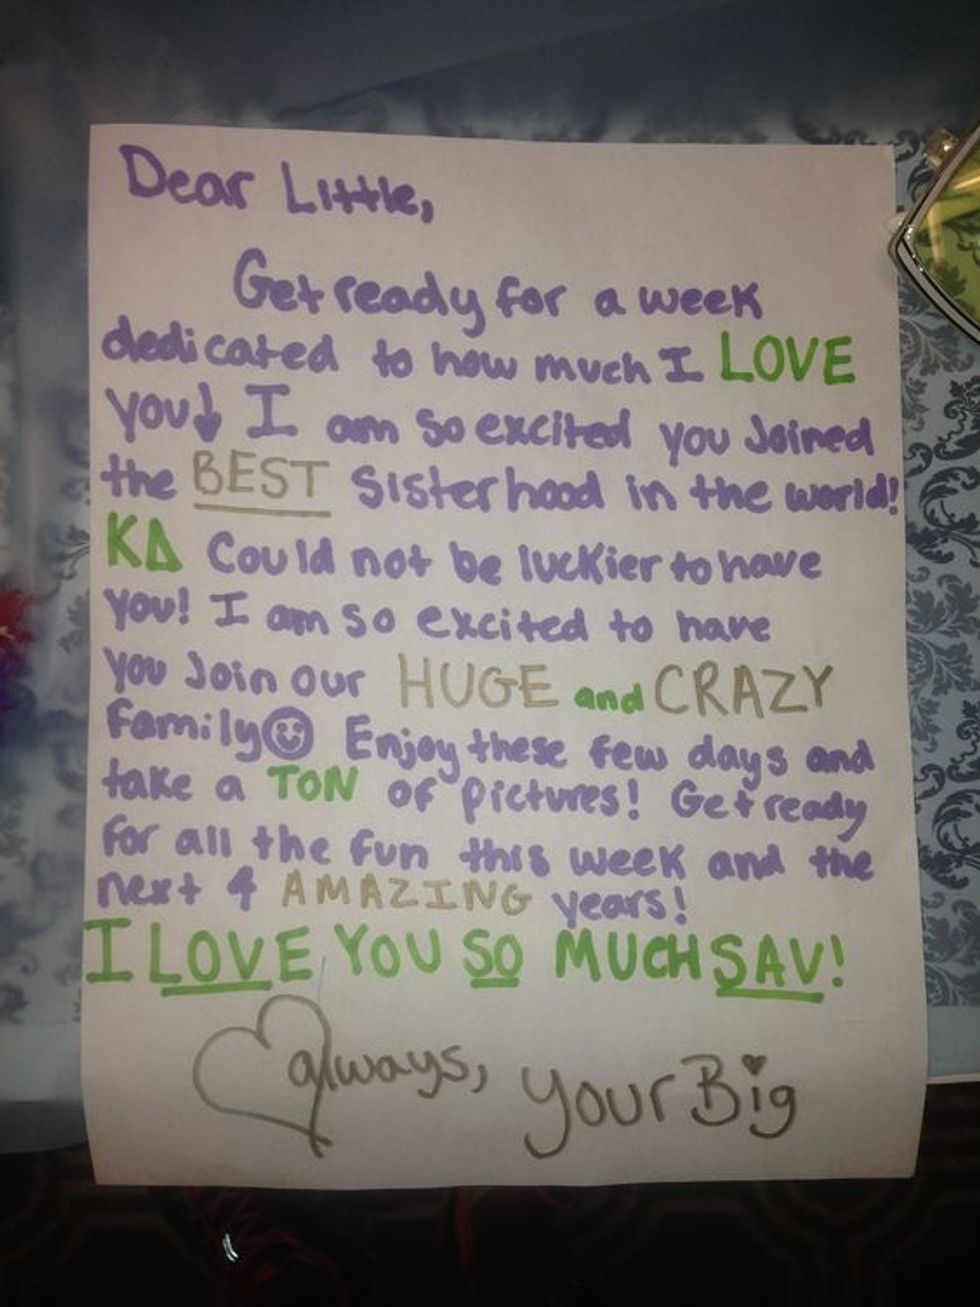 Dear Little,
Get ready for a week
dedicated to how much I LOVE
you! I am so excited you Joined
the BEST Sisterhood in the world!
KΔ Could not be luckier to have
you! I am so excited to have
you Join our HUGE and CRAZY
Family☺ Enjoy these few days and
take a TON of pictures! Get ready
for all the fun this week and the
next 4 AMAZING years!
I LOVE YOU SO MUCH SAV!
♡always, your Big